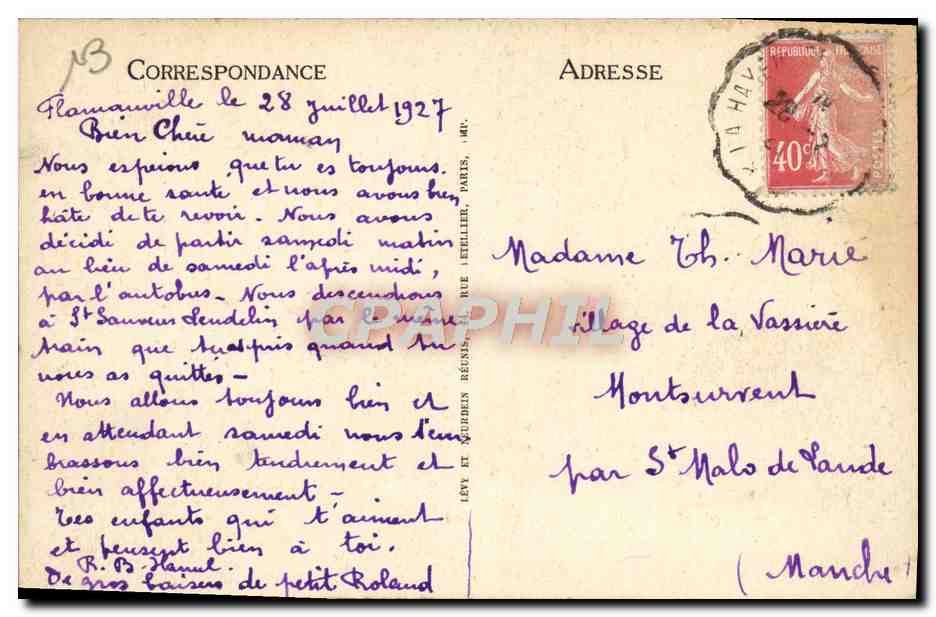 CORRESPONDANCE
Flamanville le 28 Juillet 1927
Bien Chère maman
Nous espérons que tu es toujours
en bonne santé et nous avons bien
hâte de te revoir. Nous avons
décidé de partir samedi matin
au lieu de samedi l'après midi,
par l'autobus - Nous descendrons
à St Sauveur Lendelin par le même
train que tu as pris quand tu
nous as quittés -
Nous allons toujours bien et
en attendant samedi nous t'em
brassons bien tendrement et
bien affectueusement -
Tes enfants qui t'aiment
et pensent bien à toi.
R. B. Hamel
De gros baisers de petit Roland
LÉVY ET NEURDEIN RÉUNIS, 44, RUE LETELLIER, PARIS, IMP.
ADRESSE
REPUBLIQUE FRANÇAISE
40c
POSTES
LA HAYE
Madame Th. Marie
village de la Vassière
Montsurvent
par St Malo de Lande
(Manche)
CPAPHIL